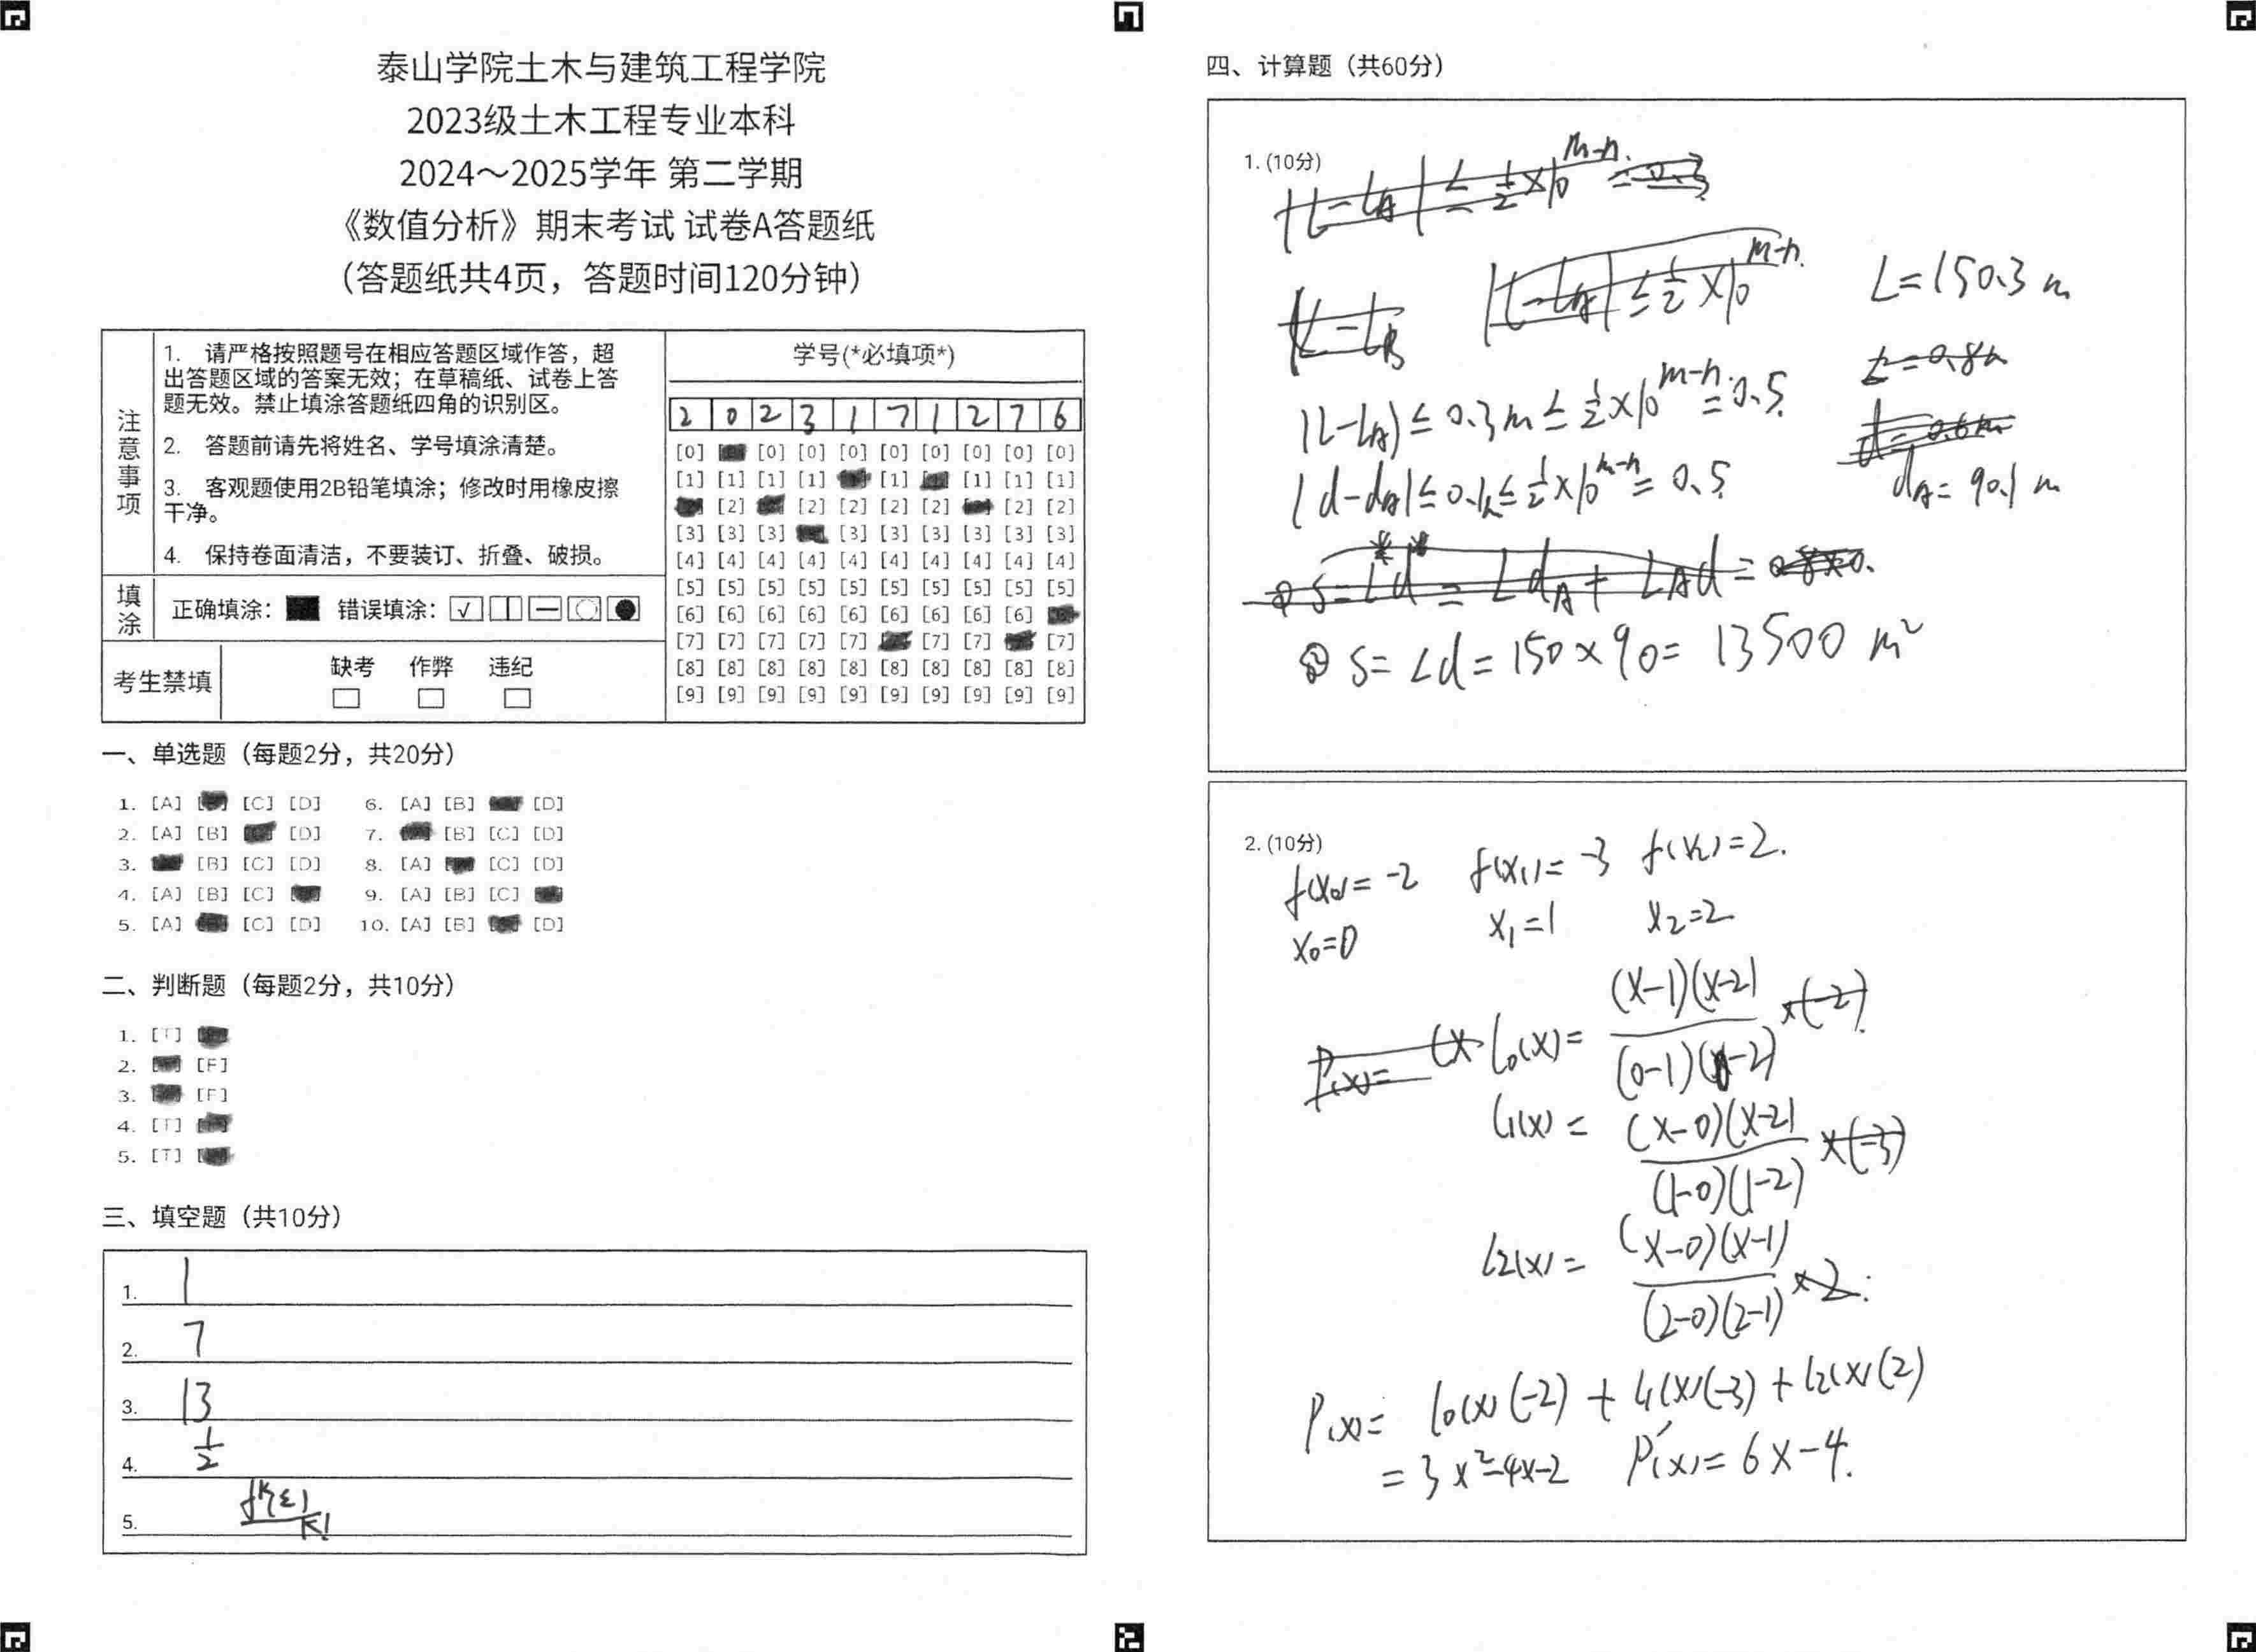 泰山学院土木与建筑工程学院
2023级土木工程专业本科
2024～2025学年 第二学期
《数值分析》期末考试 试卷A答题纸
（答题纸共4页，答题时间120分钟）
注意事项
1. 请严格按照题号在相应答题区域作答，超
出答题区域的答案无效；在草稿纸、试卷上答
题无效。禁止填涂答题纸四角的识别区。
2. 答题前请先将姓名、学号填涂清楚。
3. 客观题使用2B铅笔填涂；修改时用橡皮擦
干净。
4. 保持卷面清洁，不要装订、折叠、破损。
填涂
正确填涂： 错误填涂：
考生禁填
缺考 作弊 违纪
学号(*必填项*)
2 0 2 3 1 7 1 2 7 6
[0] [0] [0] [0] [0] [0] [0] [0] [0]
[1] [1] [1] [1] [1] [1] [1] [1]
[2] [2] [2] [2] [2] [2] [2]
[3] [3] [3] [3] [3] [3] [3] [3] [3]
[4] [4] [4] [4] [4] [4] [4] [4] [4] [4]
[5] [5] [5] [5] [5] [5] [5] [5] [5] [5]
[6] [6] [6] [6] [6] [6] [6] [6] [6]
[7] [7] [7] [7] [7] [7] [7] [7]
[8] [8] [8] [8] [8] [8] [8] [8] [8] [8]
[9] [9] [9] [9] [9] [9] [9] [9] [9] [9]
一、单选题（每题2分，共20分）
1. [A] [C] [D] 6. [A] [B] [D]
2. [A] [B] [D] 7. [B] [C] [D]
3. [B] [C] [D] 8. [A] [C] [D]
4. [A] [B] [C] 9. [A] [B] [C]
5. [A] [C] [D] 10. [A] [B] [D]
二、判断题（每题2分，共10分）
1. [T]
2. [F]
3. [F]
4. [T]
5. [T]
三、填空题（共10分）
1. 1
2. 7
3. 13
4. 1/2
5. f^K(ε)/K!
四、计算题（共60分）
1. (10分)
L=150.3 m
|L-L_A| ≤ 0.3m ≤ 1/2×10^(m-n) = 0.5
|d-d_A| ≤ 0.1 ≤ 1/2×10^(m-n) = 0.5
d_A= 90.1 m
② S= Ld = 150×90 = 13500 m²
2. (10分)
f(x₀)= -2 f(x₁)= -3 f(x₂)=2.
x₀=0 x₁=1 x₂=2
l₀(x)= (x-1)(x-2)/(0-1)(0-2)
l₁(x)= (x-0)(x-2)/(1-0)(1-2)
l₂(x)= (x-0)(x-1)/(2-0)(2-1)
P(x)= l₀(x)(-2) + l₁(x)(-3) + l₂(x)(2)
= 3x²-4x-2 P'(x)= 6x-4.